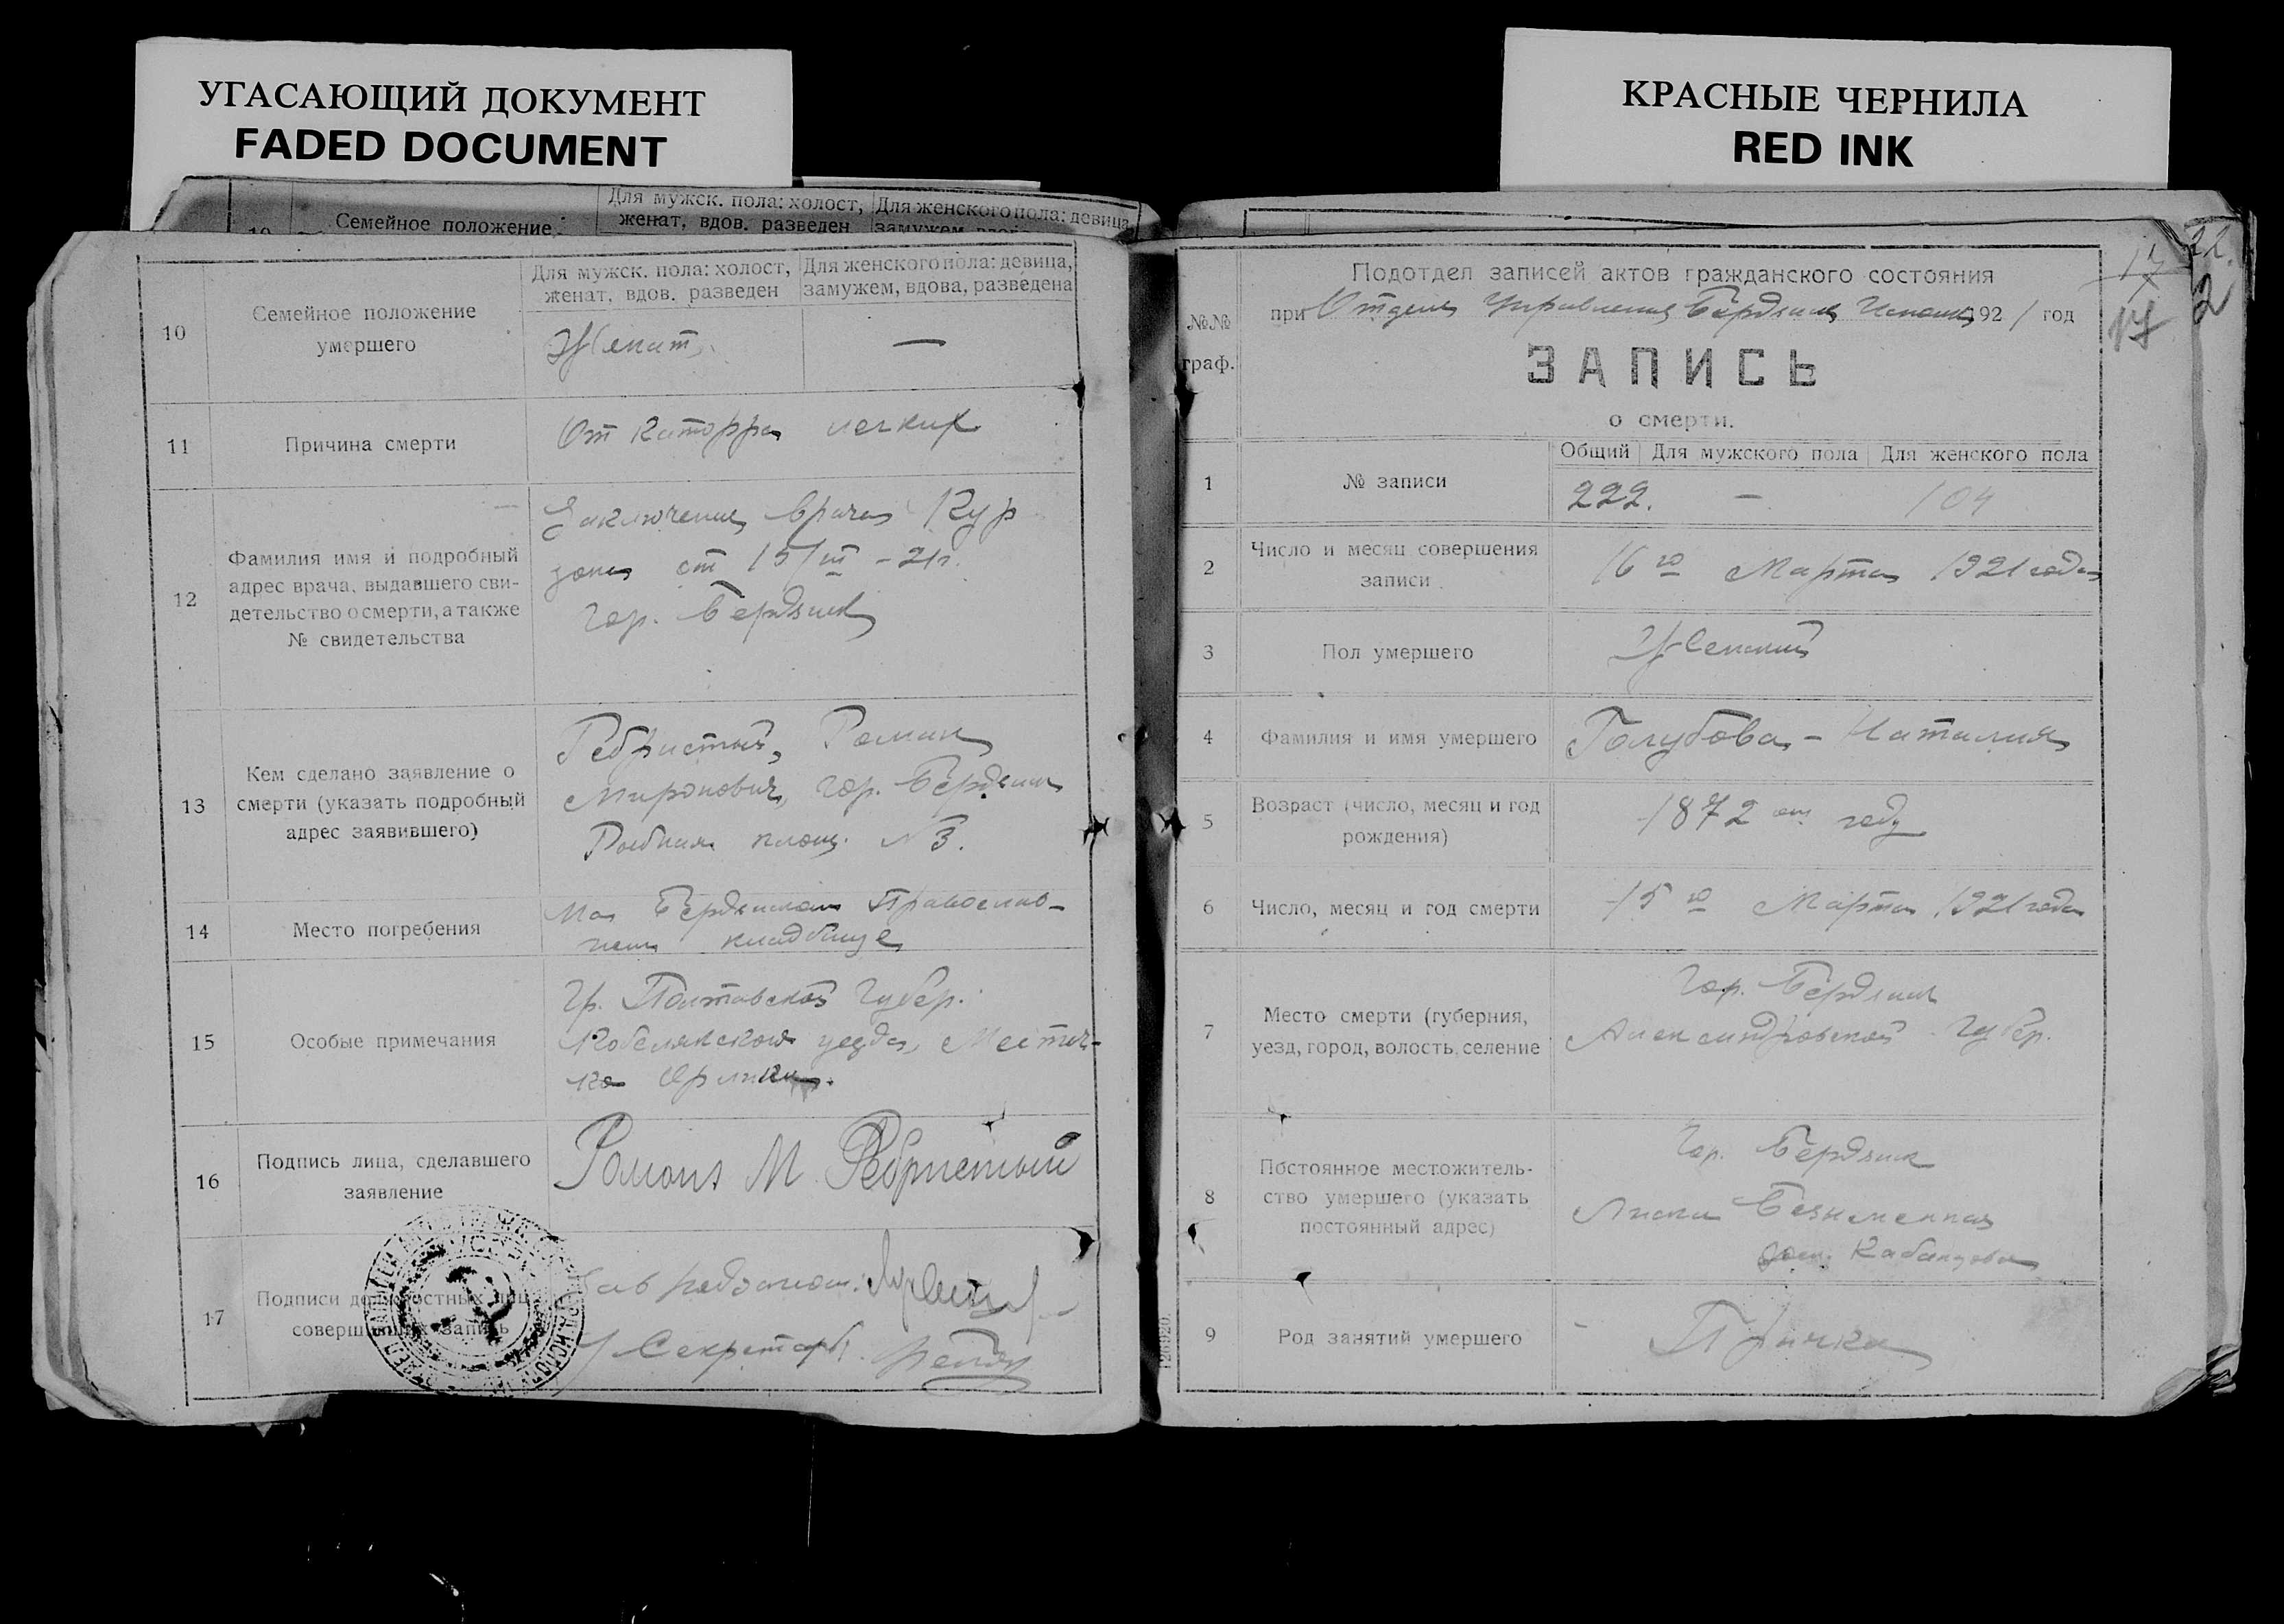 УГАСАЮЩИЙ ДОКУМЕНТ
FADED DOCUMENT
КРАСНЫЕ ЧЕРНИЛА
RED INK
Семейное положение
Для мужск. пола: холост,
женат, вдов. разведен
Для женского пола: девица,
10
Семейное положение
умершего
Для мужск. пола: холост,
женат, вдов. разведен
Для женского пола: девица,
замужем, вдова, разведена
Женат
—
11
Причина смерти
От каторра легких
12
Фамилия имя и подробный
адрес врача, выдавшего сви-
детельство о смерти, а также
№ свидетельства
Заключение врача Кур
от 15/III - 21г.
гор. Бердянск
13
Кем сделано заявление о
смерти (указать подробный
адрес заявившего)
Ребристый, Роман
Миронович, гор. Бердянск
Рыбная площ. № 3.
14
Место погребения
На Бердянском Православ-
ном кладбище
15
Особые примечания
Гр. Полтавской Губер.
Кобелякского уезда, Местеч-
ка
16
Подпись лица, сделавшего
заявление
Роман М. Ребристый
17
Подписи должностных лиц
совершивших запись
Зав подотдел.
Секретарь
22.
2
17
17
№№
граф.
Подотдел записей актов гражданского состояния
при Отделе Управления Бердянск Исполк 1921 год
ЗАПИСЬ
о смерти.
1
№ записи
Общий
Для мужского пола
Для женского пола
222.
—
104
2
Число и месяц совершения
записи
16го Марта 1921 года
3
Пол умершего
Женский
4
Фамилия и имя умершего
Голубова - Наталия
5
Возраст (число, месяц и год
рождения)
1872 ом году
6
Число, месяц и год смерти
15го Марта 1921 года
7
Место смерти (губерния,
уезд, город, волость, селение
Гор. Бердянск
Александровской Губер.
8
Постоянное местожитель-
ство умершего (указать
постоянный адрес)
Гор. Бердянск
Лиски Безименная
9
Род занятий умершего
Прачка
126920.